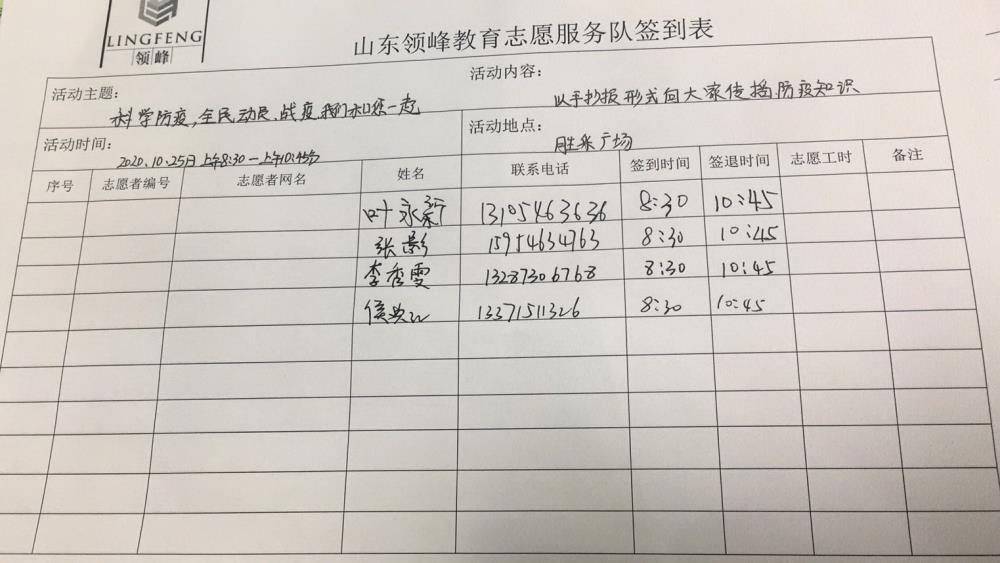 LINGFENG
领峰
山东领峰教育志愿服务队签到表
活动主题：
科学防疫，全民动员、战疫我们和您一起
活动内容：
以手抄报形式向大家传播防疫知识
活动时间：
2020.10.25日上午8:30一上午10:45分
活动地点：
胜采广场
序号 志愿者编号 志愿者网名 姓名 联系电话 签到时间 签退时间 志愿工时 备注
叶永新 13105463636 8:30 10:45
张影 15954634763 8:30 10:45
李秀雯 13287306768 8:30 10:45
13371511326 8:30 10:45